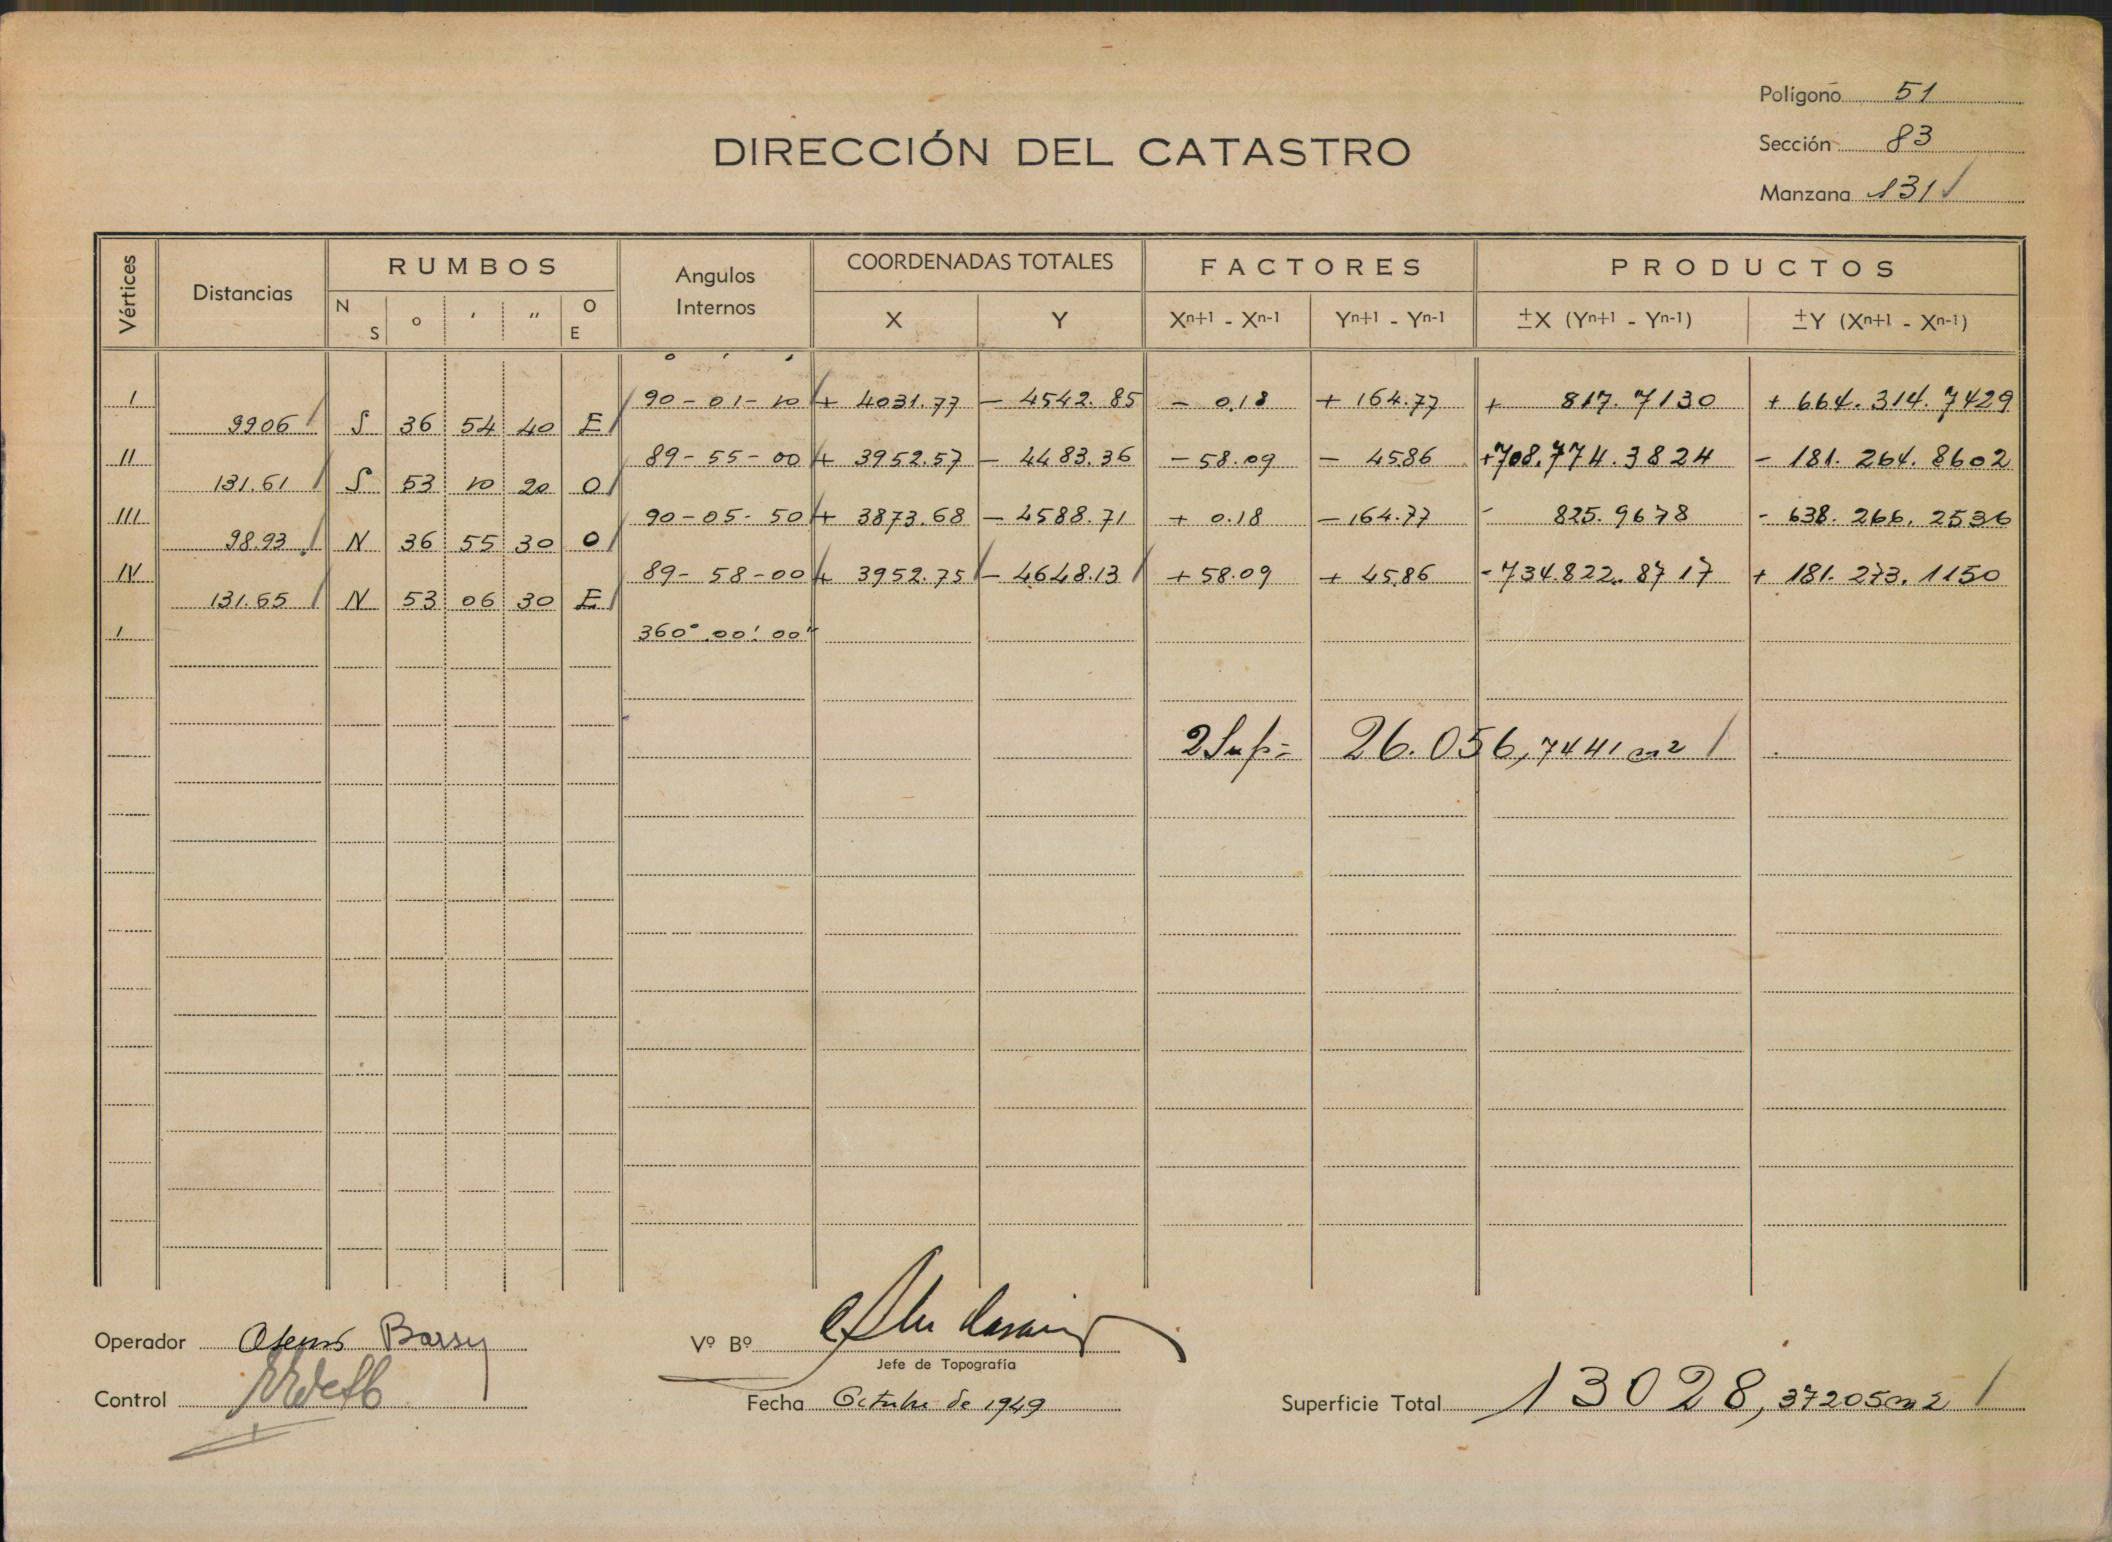 Polígono 51
DIRECCIÓN DEL CATASTRO
Sección 83
Manzana 131
Vértices Distancias RUMBOS N S o ' " O E Angulos Internos COORDENADAS TOTALES X Y FACTORES Xn+1 - Xn-1 Yn+1 - Yn-1 PRODUCTOS ±X (Yn+1 - Yn-1) ±Y (Xn+1 - Xn-1)
o ' '
I 90-01-10 + 4031.77 - 4542.85 - 0.18 + 164.77 + 817.7130 + 664.314.7429
99.06 S 36 54 40 E
II 89-55-00 + 3952.57 - 4483.36 - 58.09 - 45.86 + 708.774.3824 - 181.264.8602
131.61 S 53 10 20 O
III 90-05-50 + 3873.68 - 4588.71 + 0.18 - 164.77 - 825.9678 - 638.266.2536
98.93 N 36 55 30 O
IV 89-58-00 + 3952.75 - 4648.13 + 58.09 + 45.86 - 734.822.8717 + 181.273.1150
131.65 N 53 06 30 E
I 360°.00'.00"
2Sup= 26.056,7441 m2
Operador Barsy
Vº Bº
Jefe de Topografía
Control
Fecha Octubre de 1949
Superficie Total 13028,37205 m2